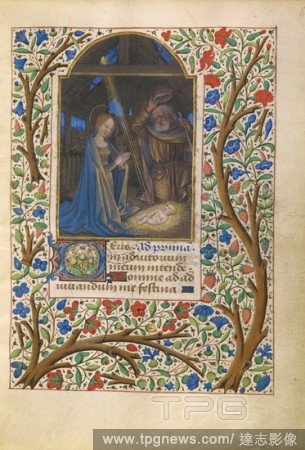 DEus Ad prima
in adiutorium
meum intende
Domine ad ad
iuuandum me festina
TPG
www.tpgnews.com/ 達志影像